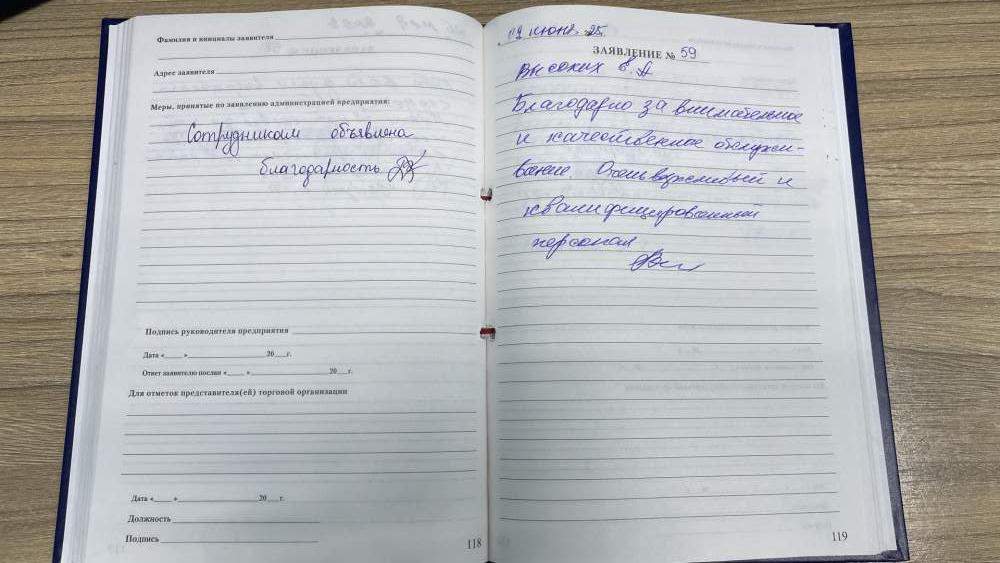 Фамилия и инициалы заявителя
Адрес заявителя
Меры, принятые по заявлению администрацией предприятия:
Сотрудникам объявлена
благодарность
Подпись руководителя предприятия
Дата «____ »____________ 20 ___г.
Ответ заявителю послан «____ »____________ 20 ___г.
Для отметок представителя(ей) торговой организации
Дата «____ »____________ 20 ___г.
Должность
Подпись
118
июня 25
ЗАЯВЛЕНИЕ № 59
Высоких В. А
Благодарю за внимательное
и качественное обслужи-
вание. Очень вежливый и
квалифицированный
персонал
119